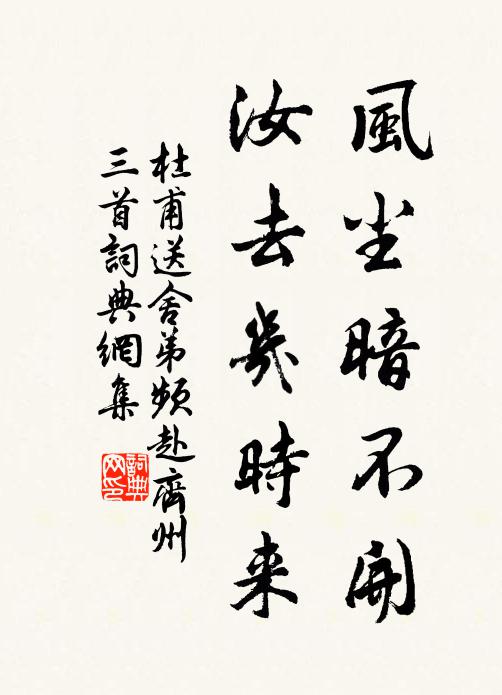 風尘暗不開
汝去幾時来
杜甫送舍弟频赴齊州
三首詞典網集
詞典
网印